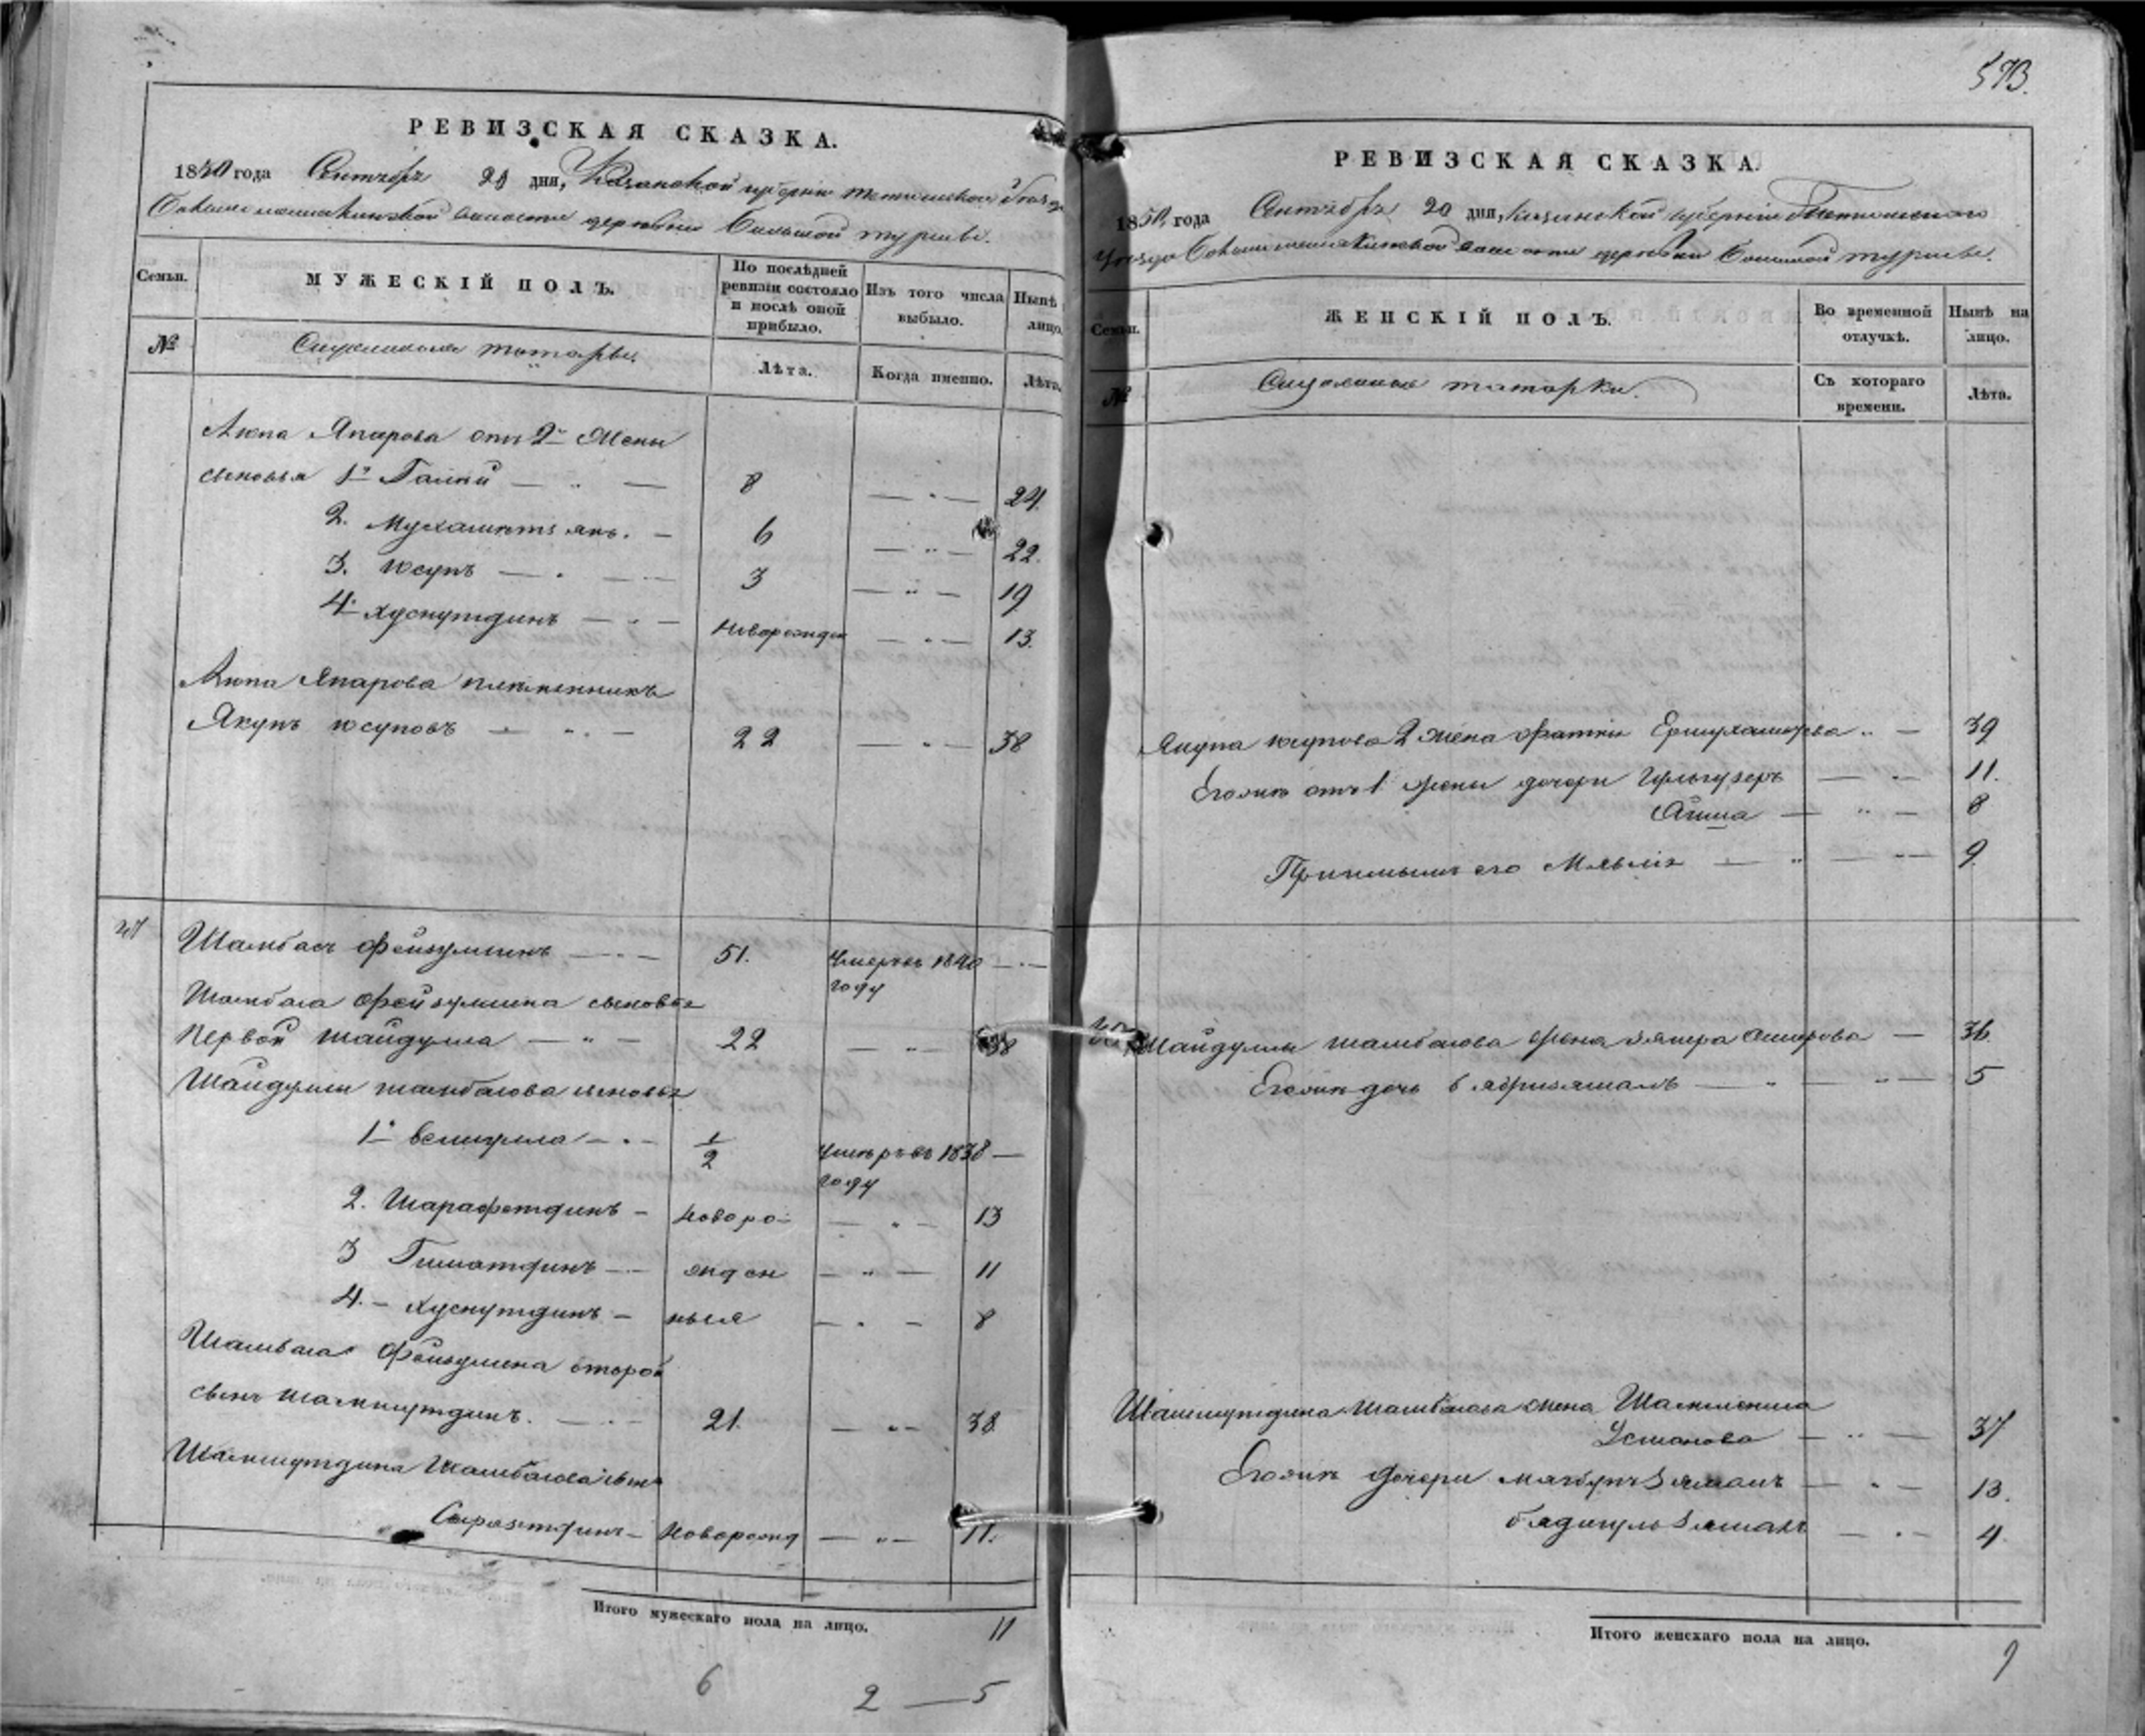 РЕВИЗСКАЯ СКАЗКА.
1850 года Сентября 20 дня, Казанской губернии Тетюшскаго Уезда
волости деревни Большой турмы.
Семьи.
МУЖЕСКІЙ ПОЛЪ.
По послѣдней ревизіи состояло и послѣ оной прибыло.
Изъ того числа выбыло.
Нынѣ лицо.
№
татары.
Лѣта.
Когда именно.
Лѣта.
Аюпа Япарова отъ 2й Жены
сыновья 1й Галкй — " — 8 — " — 24.
2. Мухаметзянъ. — 6 — " — 22.
3. юсупъ — " — 3 — " — 19
4й хуснутдинъ — " — Новорожден — " — 13.
Аюпа Япарова племенникъ
Якупъ юсуповъ — " — 22 — " — 38
27 Шамбасъ фейзуллинъ — " — 51. Умеръ въ 1840 — " —
году
Шамбаса фейзуллина сыновья
первой шайдулла — " — 22 — " — 38
Шайдуллы шамбасова сыновья
1й велиулла — " — 1/2 Умеръ въ 1838 —
году
2. Шарафетдинъ — новоро- — " — 13
3 Гиматдинъ — " — жден — " — 11
4. — хуснутдинъ — ныя — " — 8
Шамбаса Фейзулина второй
сынъ шамшутдинъ. — " — 21. — " — 38.
Шамшутдина Шамбасова сынъ
Сиразетдинъ — Новорожд — " — 11.
Итого мужескаго пола на лицо. 11
6 2 — 5
573.
РЕВИЗСКАЯ СКАЗКА.
1850 года Сентября 20 дня, Казанской губерніи Тетюшскаго
Уезда волости деревни Большой турмы.
Семьи.
ЖЕНСКІЙ ПОЛЪ.
Во временной отлучкѣ.
Нынѣ на лицо.
№
татарки.
Съ котораго времени.
Лѣта.
Якупа юсупова 2 жена фатки Ермухаметева " — 39
Его же отъ 1 жены дочери Гульгузеръ — " — 11.
Аиша — " — 8
Приемышъ его — " — " — 9.
Шайдуллы шамбасова жена зямра Амирова — 36.
Его же дочь бядризямалъ — " — " — 5
Шамшутдина шамбасова жена Шамсиниса
Усманова — " — 37
Его же дочери магбупзямалъ — " — 13.
бядигульзямалъ — " — 4.
Итого женскаго пола на лицо. 9